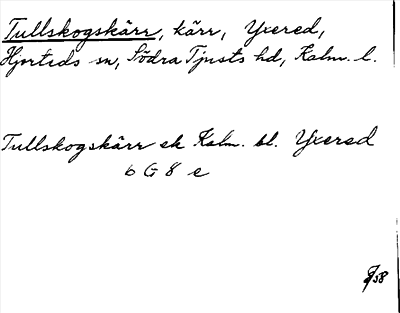 Tullskogskärr, kärr, Yxered,
Hjorteds sn, Södra Tjusts hd, Kalm. l.
Tullskogskärr ek Kalm. bl. Yxered
6 G 8 e
58